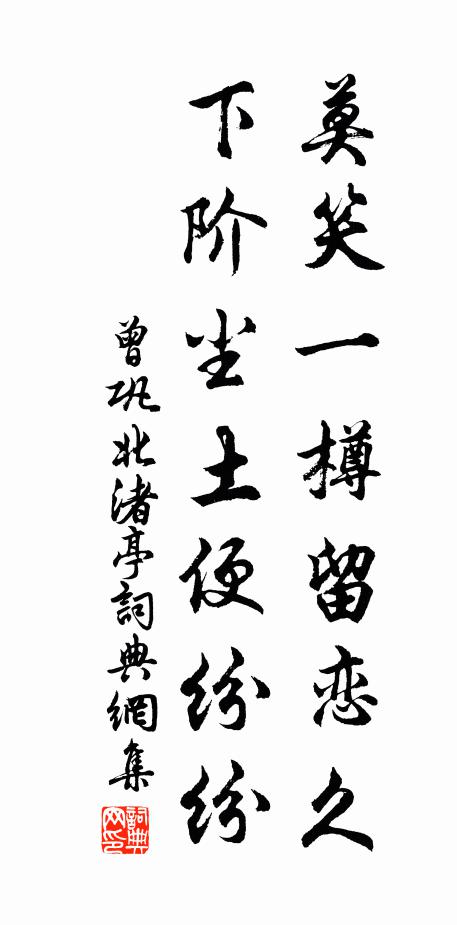 莫笑一樽留恋久
下阶尘土便纷纷
曾巩北渚亭詞典網集
詞典网印